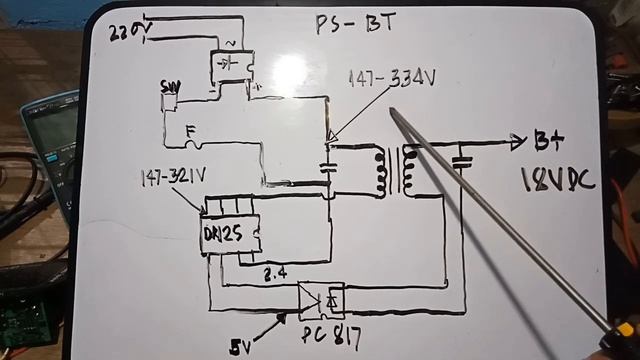 PS-BT
220V
~
SW
- +
147-334V
F
B+
18VDC
147-321V
DK125
2.4
5V
PC 817